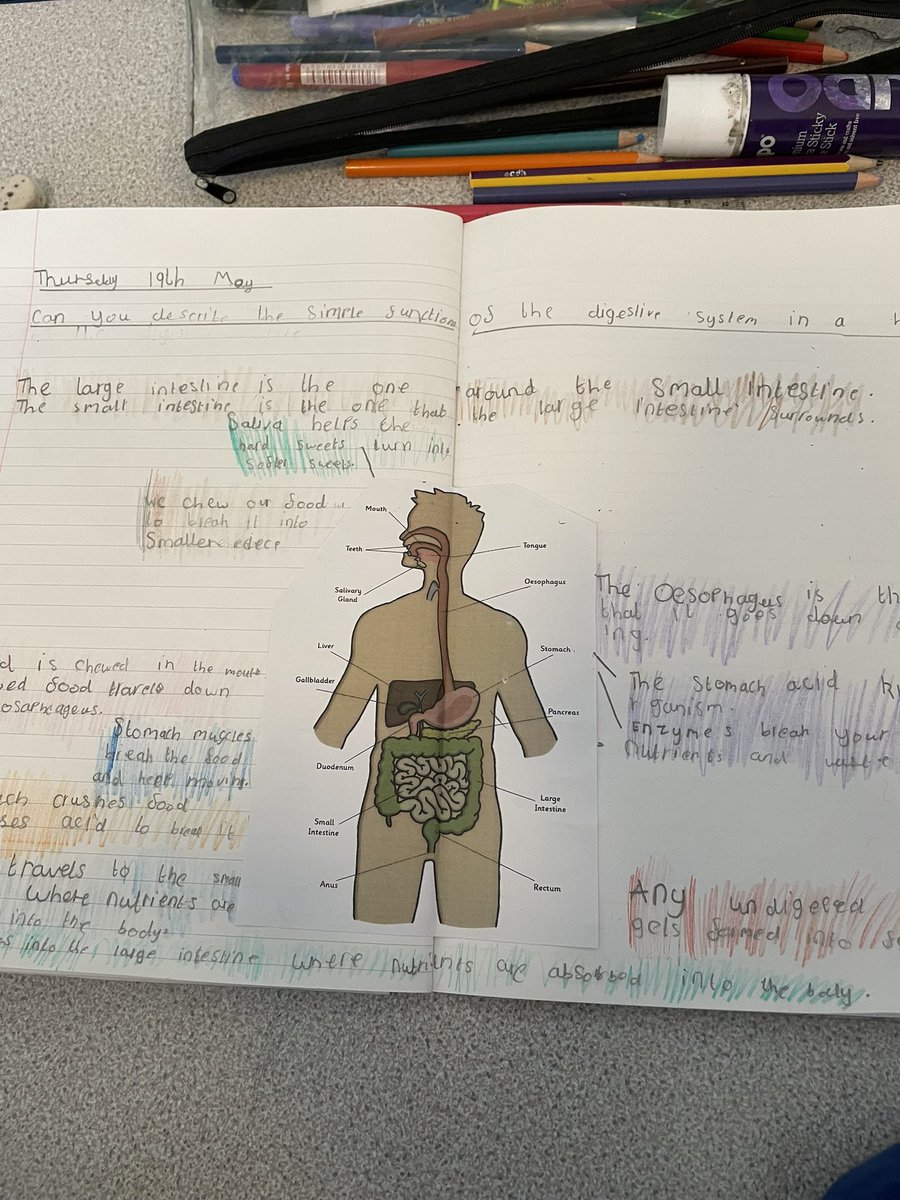 Thursday 19th May
Can you describe the simple function of the digestive system in a h
The large intestine is the one around the Small Intestin.
The small intestine is the one that the large intestine surrounds.
Saliva helps the
hard sweets turn into
softer sweets.
we chew our food
to break it into
Smaller
d is chewed in the mouth
ed food travels down
Stomach muscles
break the food
and keep moving.
ch crushes food
ses acid to break it
travels to the small
Where nutrients are
into the body.
s into the large intestine where nutrients are absorbed into the body.
Mouth
Teeth
Salivary
Gland
Liver
Gallbladder
Duodenum
Small
Intestine
Anus
Tongue
Oesophagus
Stomach
Pancreas
Large
Intestine
Rectum
The Oesophagus is th
that it goes down
ing.
The Stomach acid
ganism.
Enzyme's break your
Nutrients and waste
Any undigeed
gets formed into
Sticky